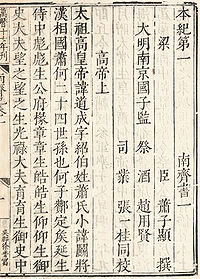 本紀第一 南齊書
梁 臣 蕭子顯 撰
大明南京國子監 祭酒 趙用賢
司業 張一桂同校
高帝上
太祖高皇帝諱道成字紹伯姓蕭氏小諱鬭將
漢相國蕭何二十四世孫也何子酇定矦延生
侍中彪彪生公府掾章章生皓皓生仰仰生御
史大夫望之望之生光祿大夫育育生御史中